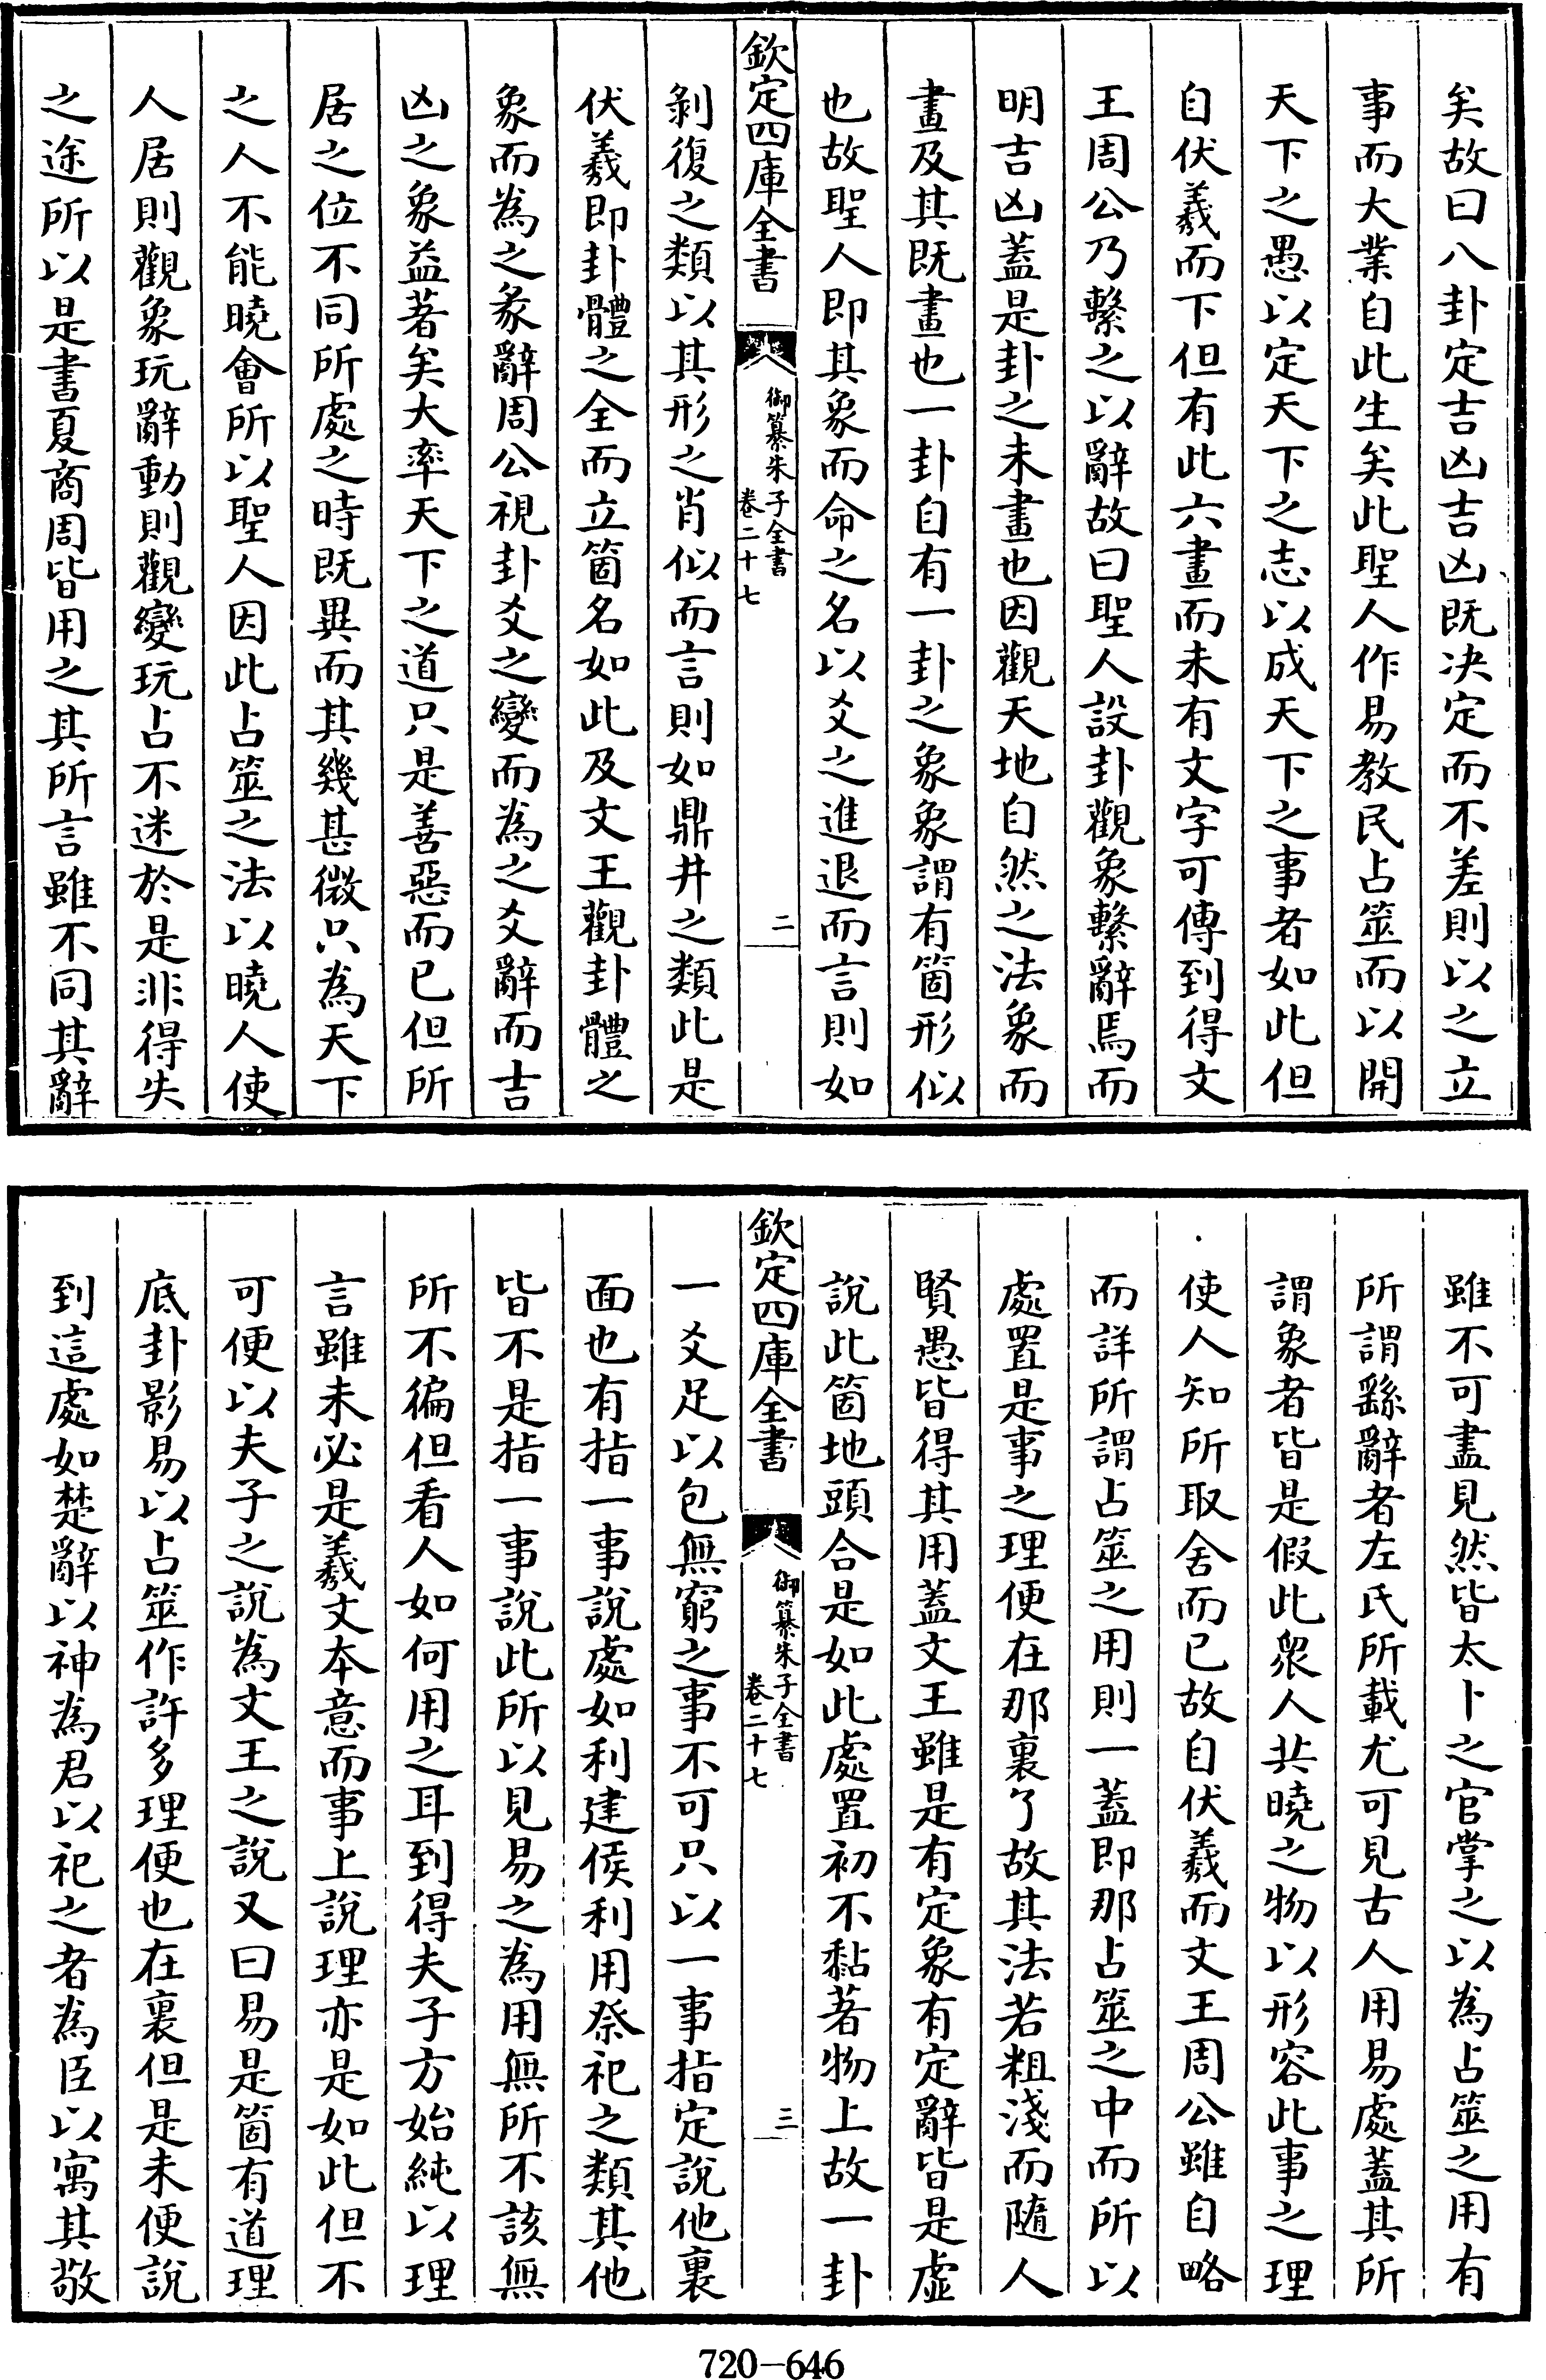 矣故曰八卦定吉凶吉凶既决定而不差則以之立
事而大業自此生矣此聖人作易教民占筮而以開
天下之愚以定天下之志以成天下之事者如此但
自伏羲而下但有此六畫而未有文字可傳到得文
王周公乃繫之以辭故曰聖人設卦觀象繫辭焉而
明吉凶蓋是卦之未畫也因觀天地自然之法象而
畫及其既畫也一卦自有一卦之象象謂有箇形似
也故聖人即其象而命之名以爻之進退而言則如
欽定四庫全書
御纂朱子全書
卷二十七
二
剝復之類以其形之肖似而言則如鼎井之類此是
伏羲即卦體之全而立箇名如此及文王觀卦體之
象而為之彖辭周公視卦爻之變而為之爻辭而吉
凶之象益著矣大率天下之道只是善惡而已但所
居之位不同所處之時既異而其幾甚微只為天下
之人不能曉會所以聖人因此占筮之法以曉人使
人居則觀象玩辭動則觀變玩占不迷於是非得失
之途所以是書夏商周皆用之其所言雖不同其辭
雖不可盡見然皆太卜之官掌之以為占筮之用有
所謂繇辭者左氏所載尤可見古人用易處蓋其所
謂象者皆是假此衆人共曉之物以形容此事之理
使人知所取舍而已故自伏羲而文王周公雖自略
而詳所謂占筮之用則一蓋即那占筮之中而所以
處置是事之理便在那裏了故其法若粗淺而隨人
賢愚皆得其用蓋文王雖是有定象有定辭皆是虛
說此箇地頭合是如此處置初不黏著物上故一卦
欽定四庫全書
御纂朱子全書
卷二十七
三
一爻足以包無窮之事不可只以一事指定說他裏
面也有指一事說處如利建侯利用祭祀之類其他
皆不是指一事說此所以見易之為用無所不該無
所不徧但看人如何用之耳到得夫子方始純以理
言雖未必是羲文本意而事上說理亦是如此但不
可便以夫子之說為文王之說又曰易是箇有道理
底卦影易以占筮作許多理便也在裏但是未便說
到這處如楚辭以神為君以祀之者為臣以寓其敬
720-646